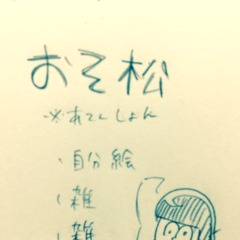 おそ松
※あてんしょん
・自分絵
・雑
・雑